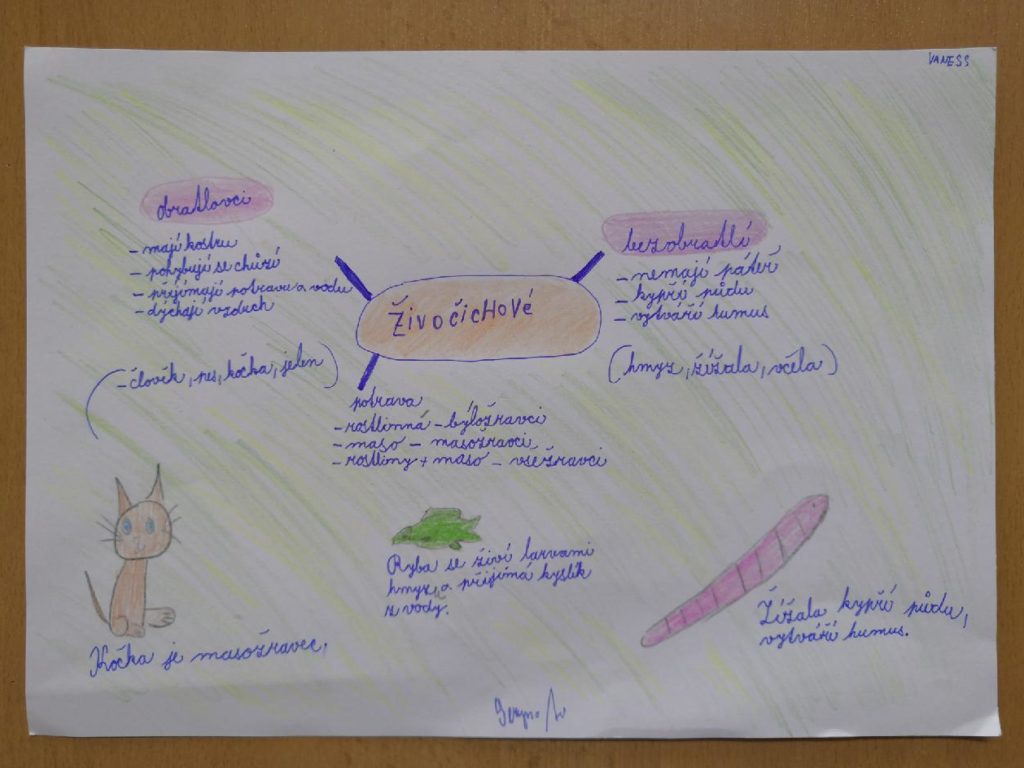 VANESS
obratlovci
- mají kostru
- pohybují se chůzí
- přijímají potravu a vodu
- dýchají vzduch
(- člověk, pes, kočka, jelen)
ŽivočicHové
bezobratlí
- nemají páteř
- kypří půdu
- vytváří humus
(hmyz, žížala, včela)
potrava
- rostlinná - býložravci
- maso - masožravci
- rostliny + maso - všežravci
Ryba se živí larvami
hmyz a přijímá kyslík
z vody.
Kočka je masožravec,
Žížala kypří půdu,
vytváří humus.